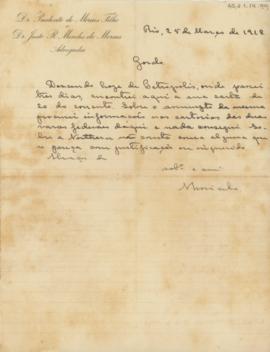 Dr. Prudente de Moraes Filho
Dr. Justo R. Mendes de Moraes
Advogados
Rio, 25 de Março, 1918
Gordo
Descendo hoje de Petropolis, onde passei
tres dias, encontrei aqui a sua carta de
20 do corrente. Sobre o assumpto da mesma
procurei informações nos cartorios das duas
varas federaes daqui e nada consegui. So-
bre a Northern não consta cousa alguma que
se pareça com justificação ou inquerito
Abraço do